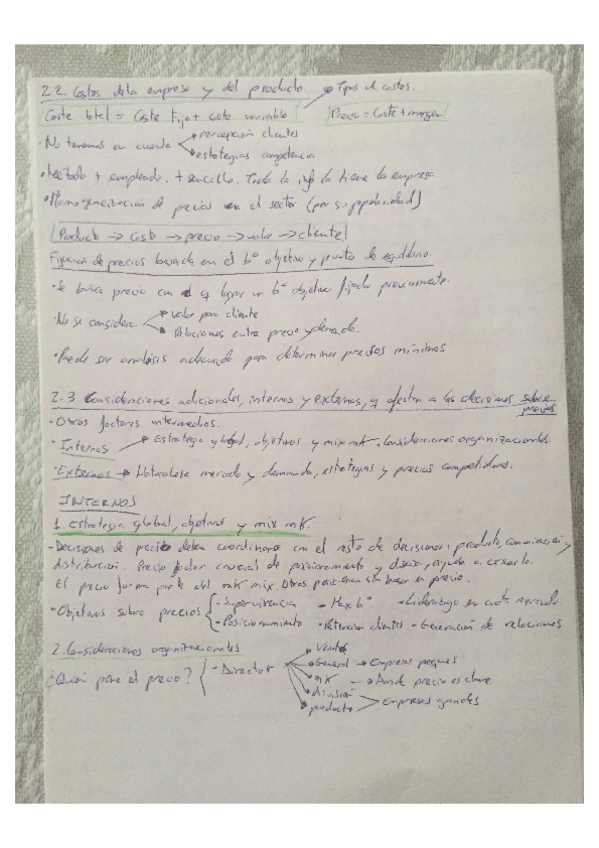 2.2. Costos de la empresa y del producto. → Tipos de costes.
Coste total = Coste Fijo + coste variable    Precio = Coste + margen
· No tenemos en cuenta → percepción clientes
→ estrategias competencia
· Método + empleado. + sencillo. Toda la inf la tiene la empresa
· Homogeneización de precios en el sector (por su popularidad)
Producto → Coste → precio → valor → cliente
Fijación de precios basada en el bº objetivo y punto de equilibrio.
· Se busca precio con el q lograr un bº objetivo fijado previamente.
· No se considera → Valor para cliente
→ Relaciones entre precio y demanda.
· Puede ser análisis adecuado para determinar precios mínimos
2.3 Consideraciones adicionales, internas y externas, q afectan a las decisiones sobre precios
· Otros factores intermedios.
· Internos → Estrategia global, objetivos y mix mk. Consideraciones organizacionales.
· Externos → Naturaleza mercado y demanda, estrategias y precios competidores.
INTERNOS
1 estrategia global, objetivos y mix mk.
- Decisiones de precio deben coordinarse con el resto de decisiones: producto, comunicación y
distribución. Precio factor crucial de posicionamiento y diseño, ayuda a crearlo.
El precio forma parte del mk mix. Otros posicionan sin basar en precio.
· Objetivos sobre precios { - Supervivencia - Max bº - Liderazgo en cuota mercado
- Posicionamiento - Retención clientes - Generación de relaciones
2. Consideraciones organizacionales
¿Quién pone el precio? { - Director → Ventas
→ General → Empresas peques
→ mk → Donde precio es clave
→ división
→ producto > Empresas grandes